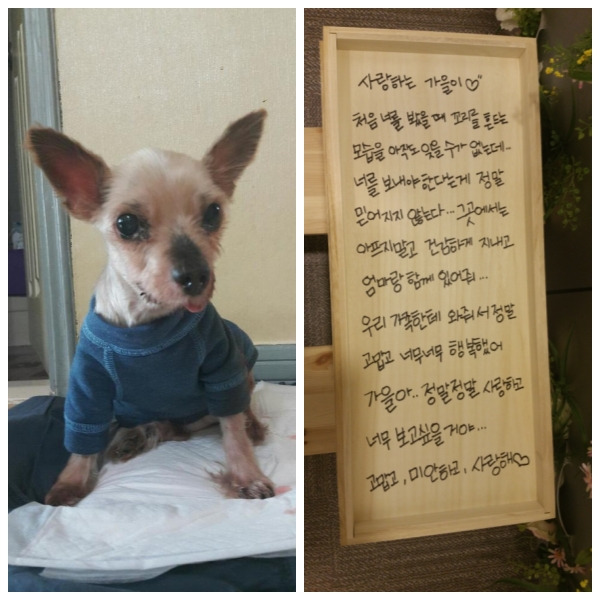 사랑하는 가을이♡
처음 너를 봤을 때 꼬리를 흔드는
모습을 아직도 잊을 수가 없는데..
너를 보내야 한다는게 정말
믿어지지 않는다... 그곳에서는
아프지말고 건강하게 지내고
엄마랑 함께 있어줘...
우리 가족한테 와줘서 정말
고맙고 너무너무 행복했어
가을아.. 정말정말 사랑하고
너무 보고싶을거야...
고맙고, 미안하고, 사랑해♡